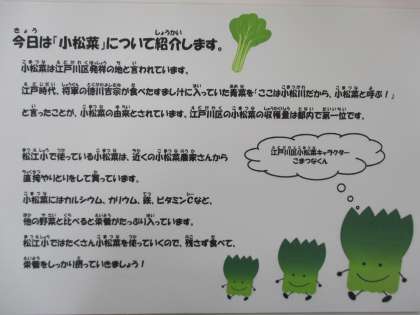 今日は「小松菜」について紹介します。
小松菜は江戸川区発祥の地と言われています。
江戸時代、将軍の徳川吉宗が食べたすまし汁に入っていた青菜を「ここは小松川だから、小松菜と呼ぶ！」
と言ったことが、小松菜の由来とされています。江戸川区の小松菜の収穫量は都内で第一位です。
松江小で使っている小松菜は、近くの小松菜農家さんから
直接やりとりをして買っています。
江戸川区小松菜キャラクター
こまつなくん
小松菜にはカルシウム、カリウム、鉄、ビタミンCなど、
他の野菜と比べると栄養がたっぷり入っています。
松江小ではたくさん小松菜を使っているので、残さず食べて、
栄養をしっかり摂っていきましょう！